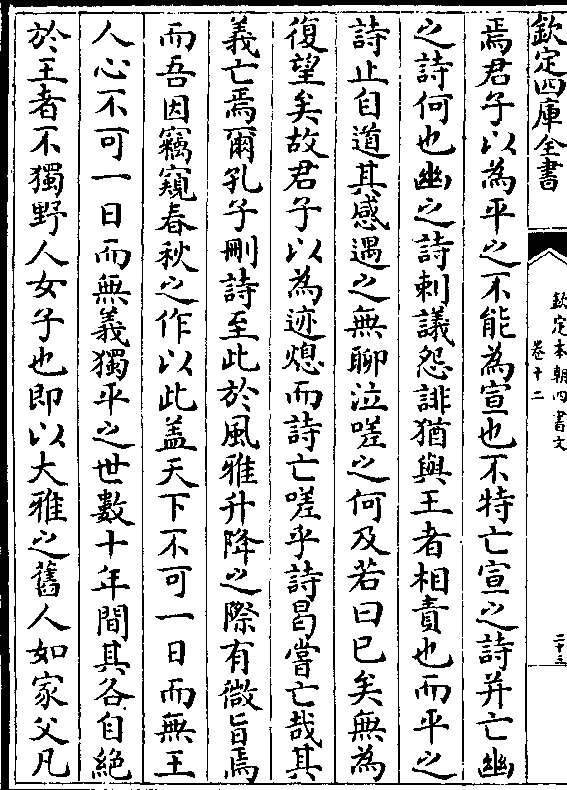 欽定四庫全書
欽定本朝四書文
卷十二
二十三
焉君子以為平之不能為宣也不特亡宣之詩并亡幽
之詩何也幽之詩刺議怨誹猶與王者相責也而平之
詩止自道其感遇之無聊泣嗟之何及若曰已矣無為
復望矣故君子以為迹熄而詩亡嗟乎詩曷嘗亡哉其
義亡焉爾孔子刪詩至此於風雅升降之際有微旨焉
而吾因竊窺春秋之作以此盖天下不可一日而無王
人心不可一日而無義獨平之世數十年間其各自絕
於王者不獨野人女子也即以大雅之舊人如家父凡